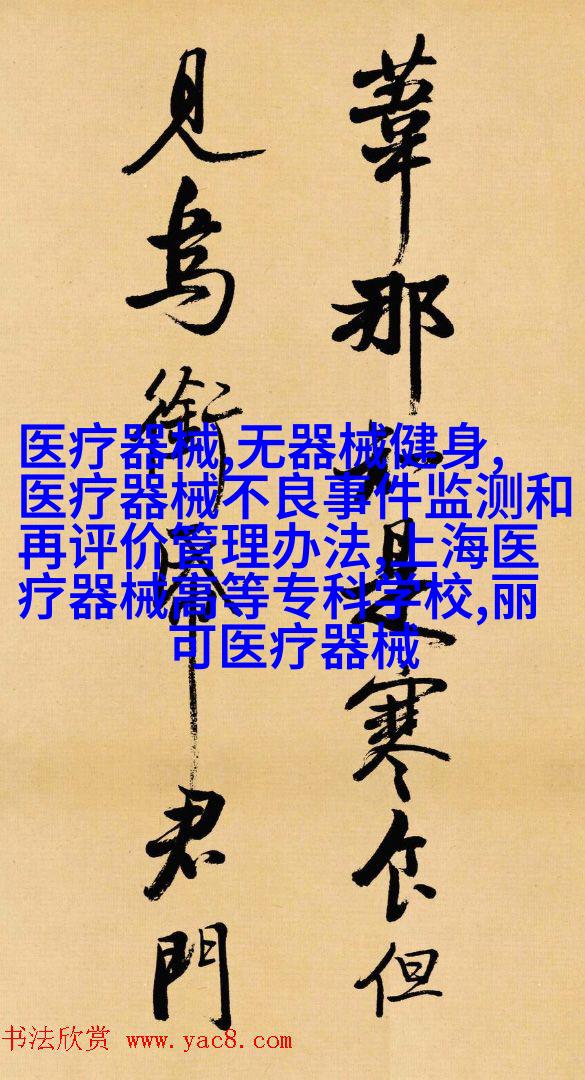 葦那知是寒食但
見烏銜帋君門
医疗器械,无器械健身,
医疗器械不良事件监测和
再评价管理办法,上海医
疗器械高等专科学校,丽
可医疗器械
书法欣赏 www.yac8.com